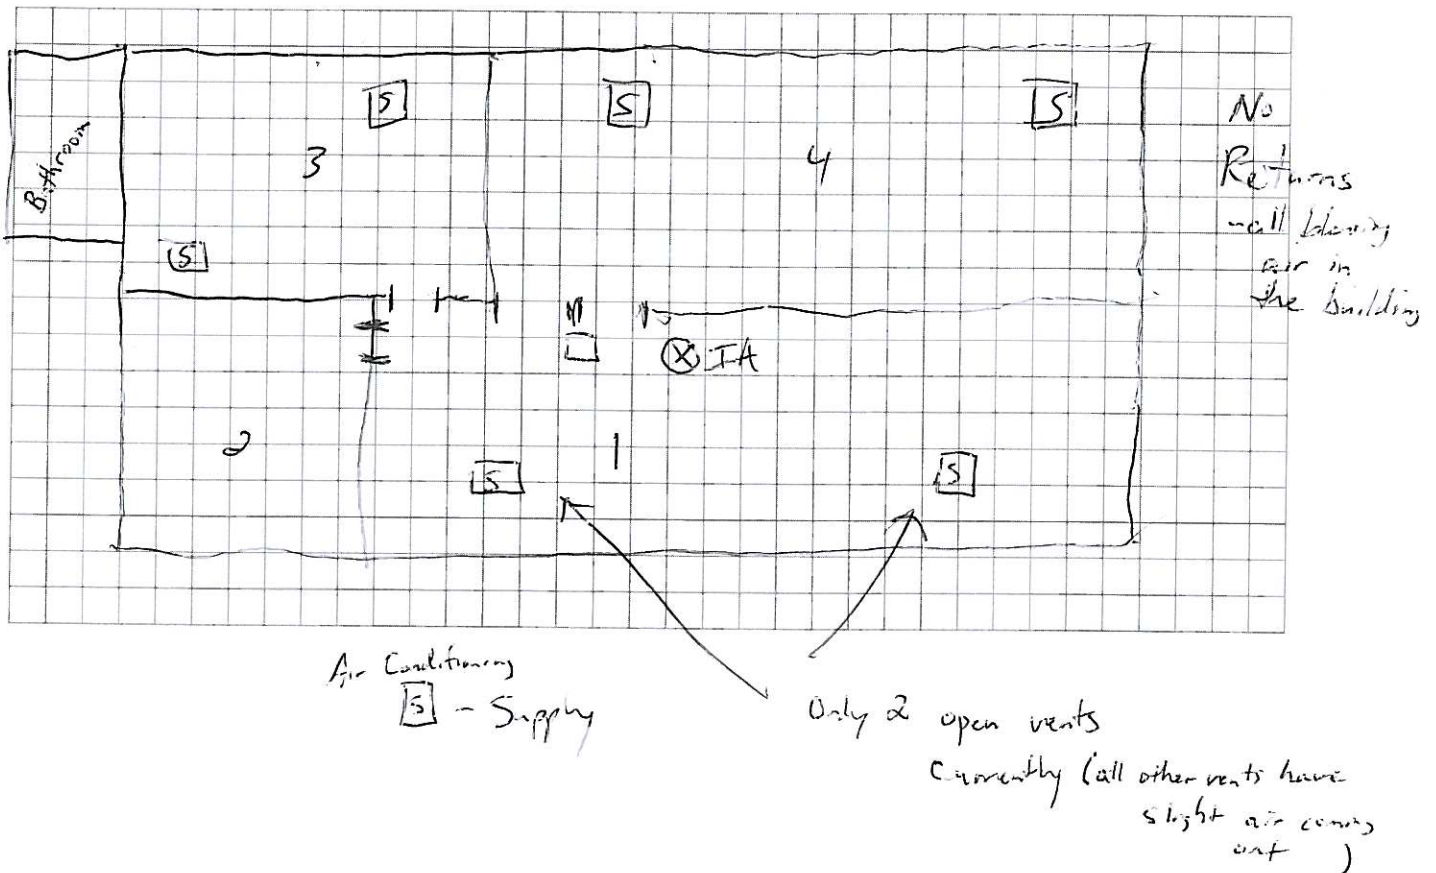 S
S
S
No
Returns
-all blowing
air in
the building
Bathroom
3
4
S
IA
2
1
S
S
Air Conditioning
S - Supply
Only 2 open vents
Currently (all other vents have
slight air coming
out )